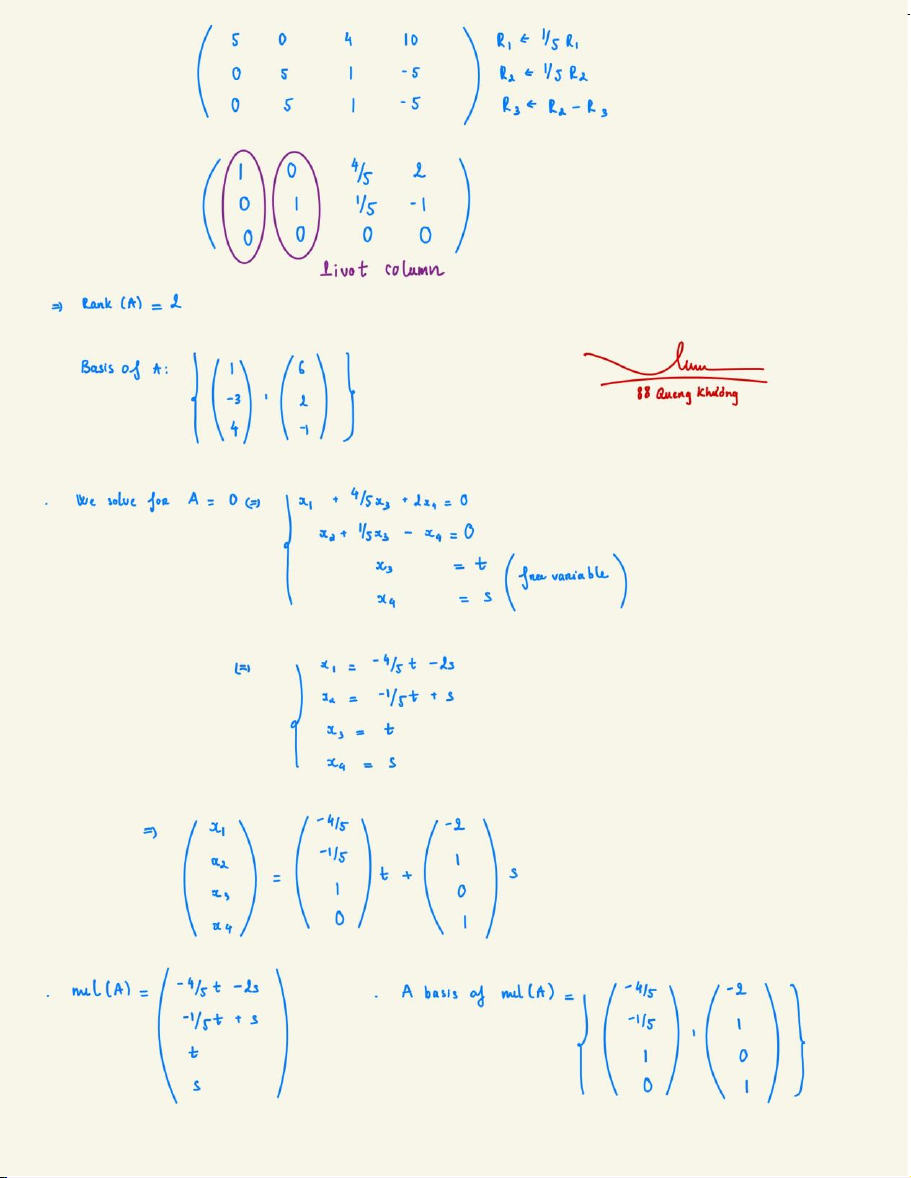 5 0 4 10 R₁ ← 1/5 R₁
0 5 1 -5 R₂ ← 1/5 R₂
0 5 1 -5 R₃ ← R₂ - R₃
1 0 4/5 2
0 1 1/5 -1
0 0 0 0
Pivot column
⇒ Rank (A) = 2
Basis of A: { (1 -3 4), (6 2 -1) }
88 Quang Khương
. We solve for A = 0 (=) x₁ + 4/5x₃ + 2x₄ = 0
x₂ + 1/5x₃ - x₄ = 0
x₃ = t
(free variable)
x₄ = s
(=) x₁ = -4/5 t - 2s
x₂ = -1/5t + s
x₃ = t
x₄ = s
⇒ (x₁ x₂ x₃ x₄) = (-4/5 -1/5 1 0) t + (-2 1 0 1) s
. nul(A) = (-4/5 t - 2s
-1/5t + s
t
s)
. A basis of nul(A) = { (-4/5 -1/5 1 0), (-2 1 0 1) }